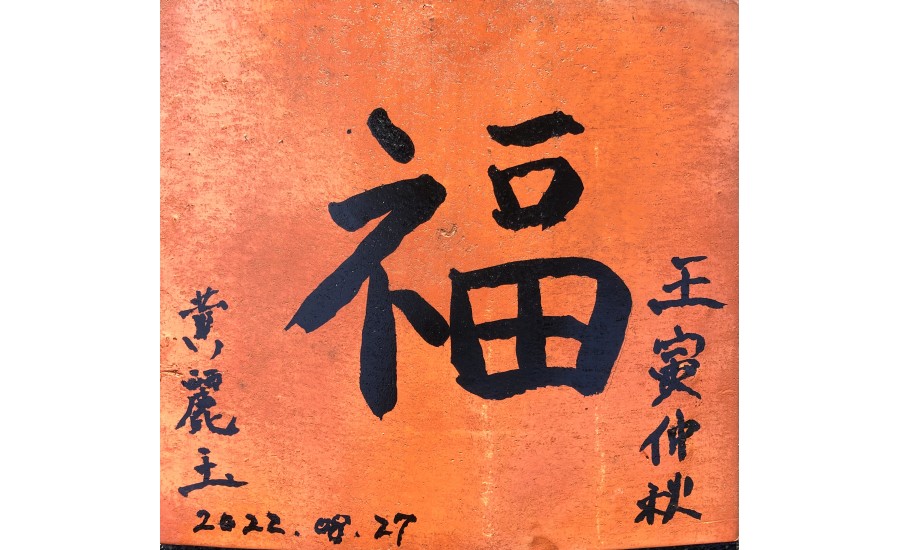 福
壬寅仲秋
黄麗玉
2022.08.27